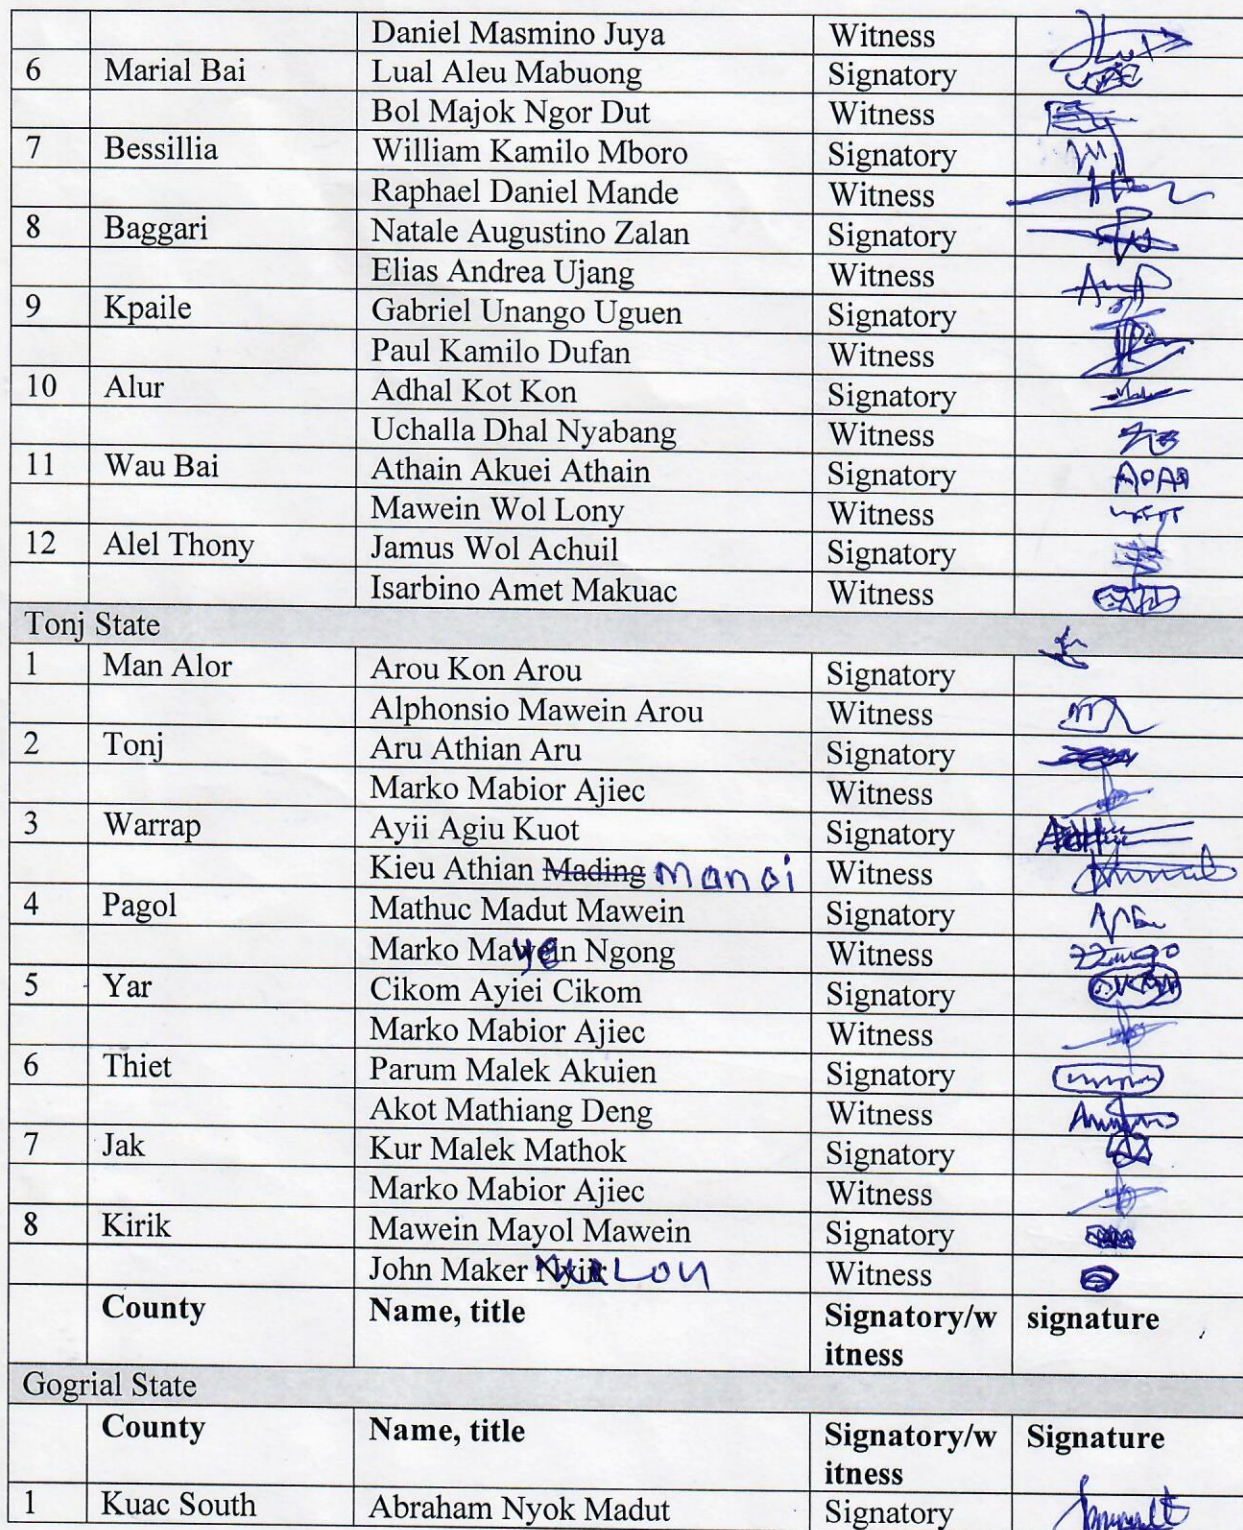 Daniel Masmino Juya Witness
6 Marial Bai Lual Aleu Mabuong Signatory
Bol Majok Ngor Dut Witness
7 Bessillia William Kamilo Mboro Signatory
Raphael Daniel Mande Witness
8 Baggari Natale Augustino Zalan Signatory
Elias Andrea Ujang Witness
9 Kpaile Gabriel Unango Uguen Signatory
Paul Kamilo Dufan Witness
10 Alur Adhal Kot Kon Signatory
Uchalla Dhal Nyabang Witness
11 Wau Bai Athain Akuei Athain Signatory
Mawein Wol Lony Witness
12 Alel Thony Jamus Wol Achuil Signatory
Isarbino Amet Makuac Witness
Tonj State
1 Man Alor Arou Kon Arou Signatory
Alphonsio Mawein Arou Witness
2 Tonj Aru Athian Aru Signatory
Marko Mabior Ajiec Witness
3 Warrap Ayii Agiu Kuot Signatory
Kieu Athian Mading Witness
4 Pagol Mathuc Madut Mawein Signatory
Marko Mawein Ngong Witness
5 Yar Cikom Ayiei Cikom Signatory
Marko Mabior Ajiec Witness
6 Thiet Parum Malek Akuien Signatory
Akot Mathiang Deng Witness
7 Jak Kur Malek Mathok Signatory
Marko Mabior Ajiec Witness
8 Kirik Mawein Mayol Mawein Signatory
John Maker Witness
County Name, title Signatory/w signature
itness
Gogrial State
County Name, title Signatory/w Signature
itness
1 Kuac South Abraham Nyok Madut Signatory